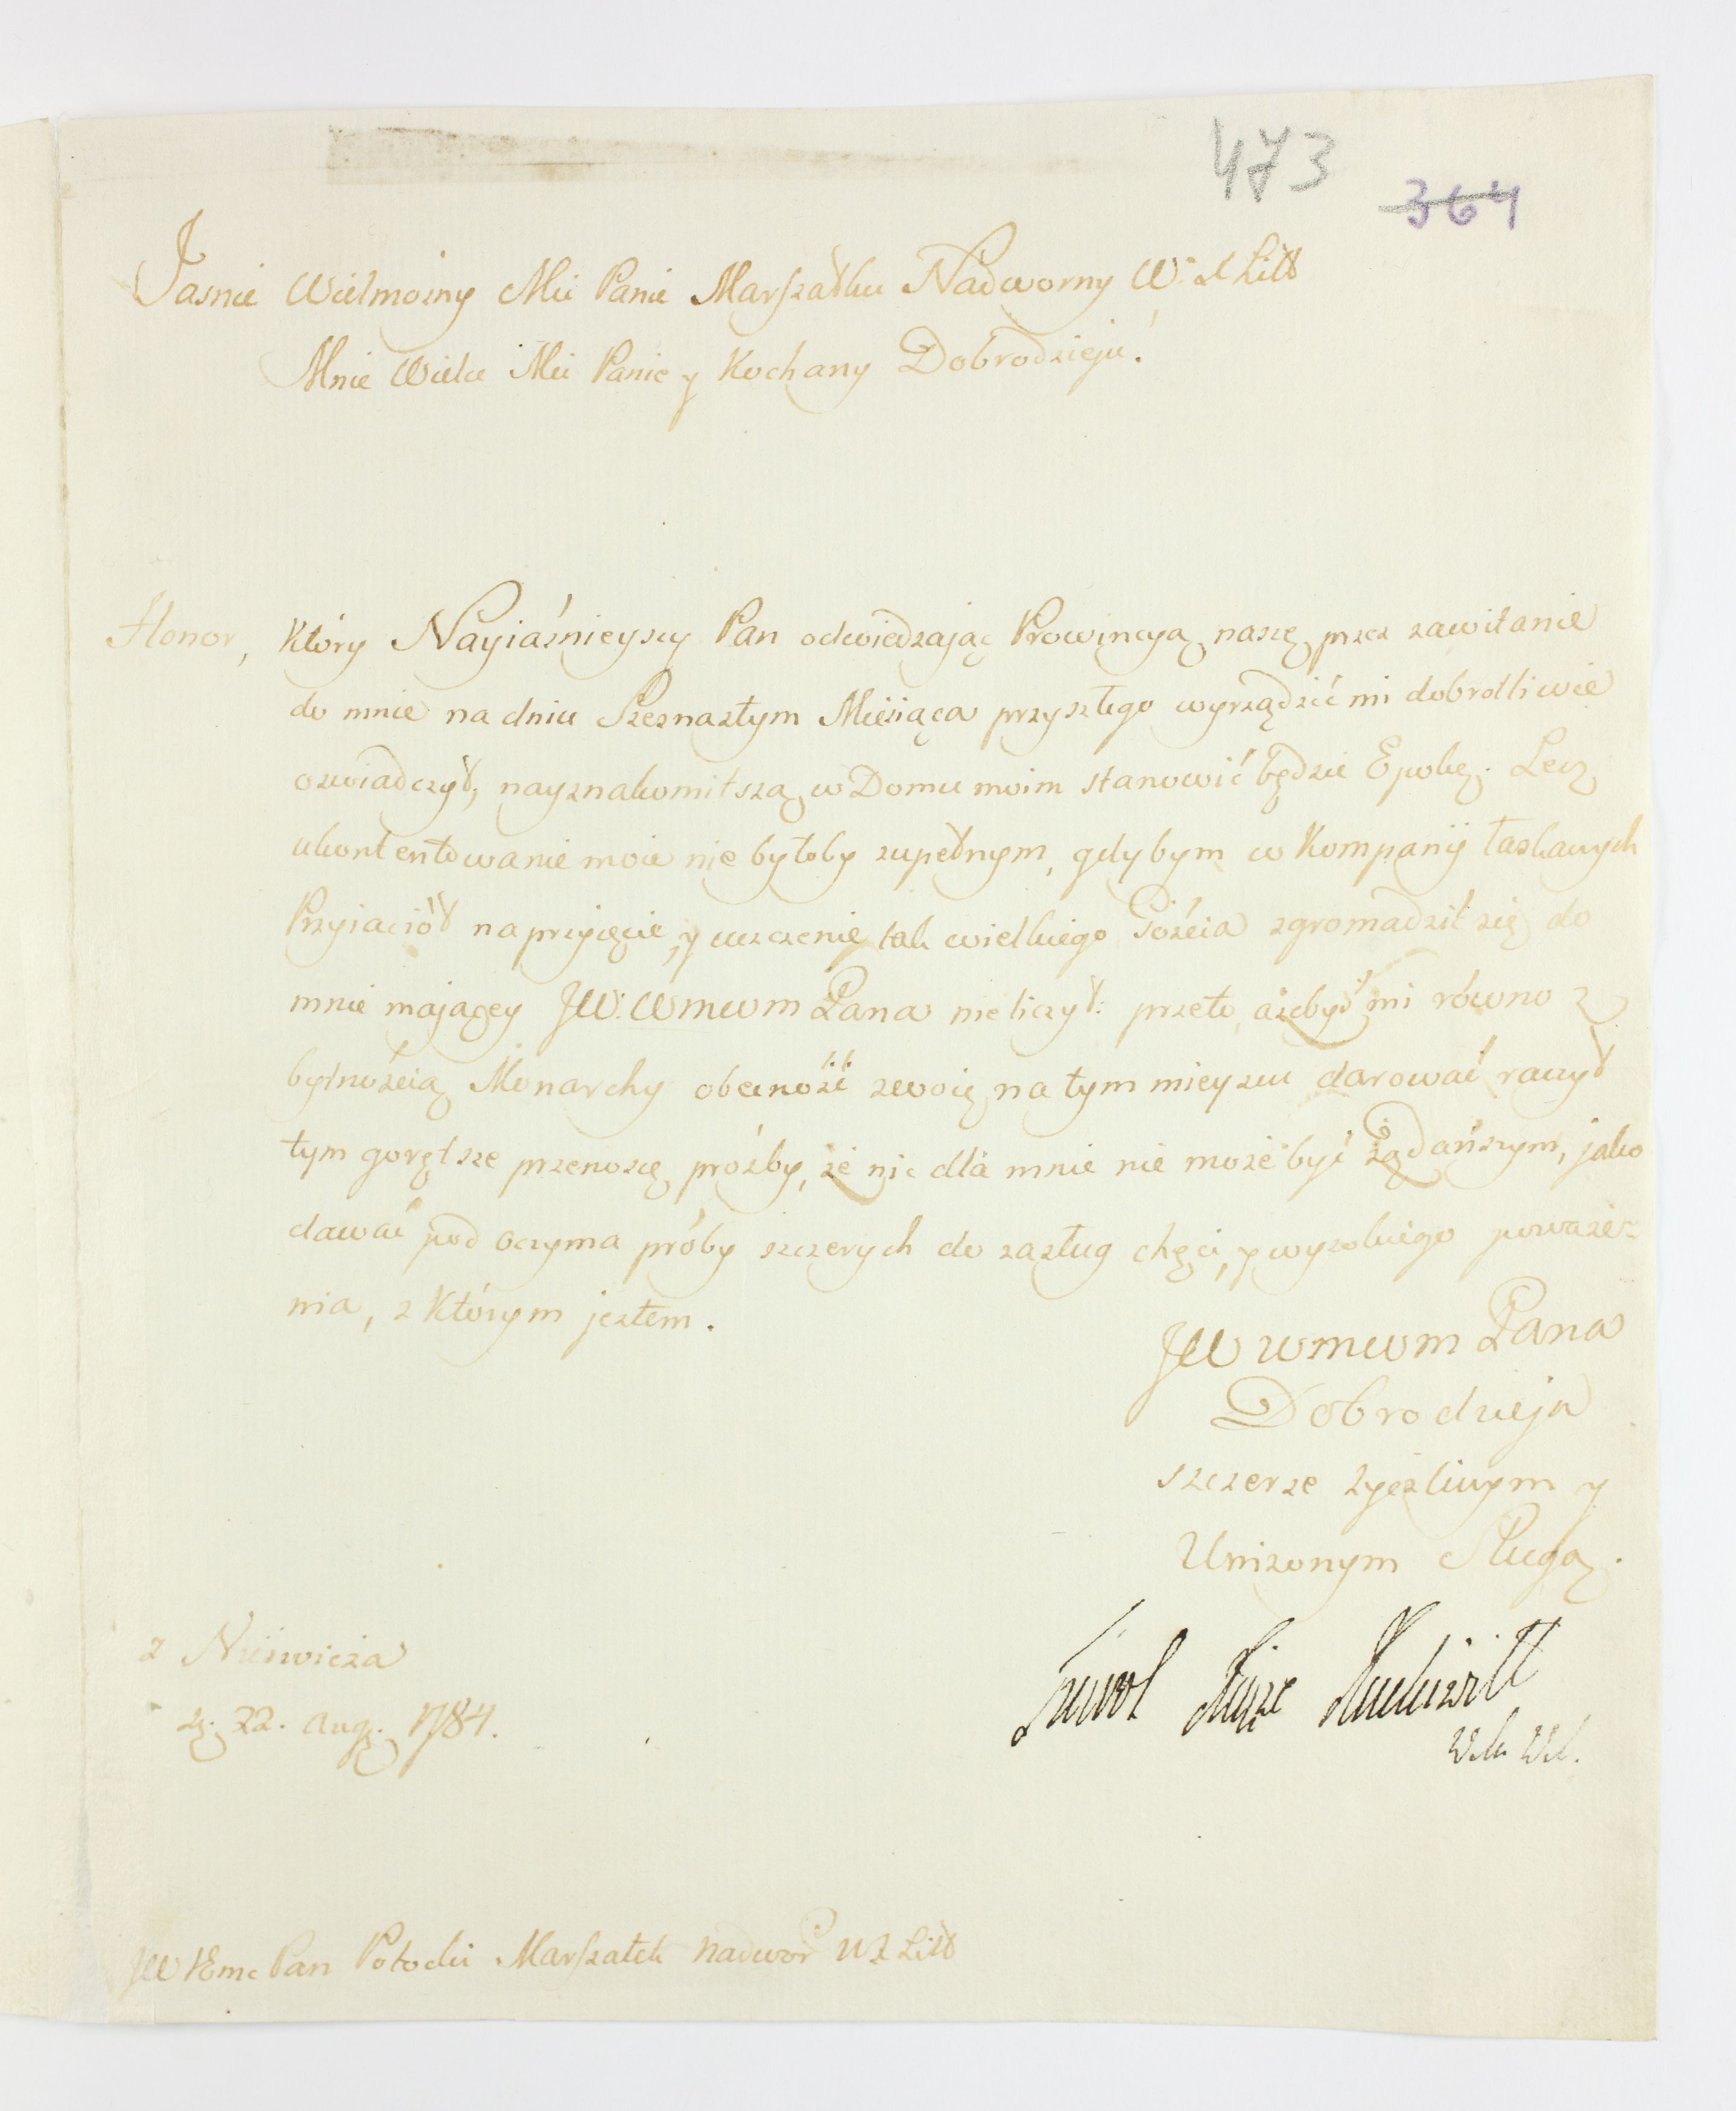 473
364
Jasnie Wielmożny Mci Panie Marszałku Nadworny W. X Litt
Mnie Wielce Mci Panie y Kochany Dobrodzieju!
Honor, który Nayiaśnieyszy Pan odwiedzając Prowincyą naszę przez zawitanie
do mnie na dniu Szesnastym Miesiąca przyszłego wyrządzić mi dobrotliwie
oswiadczył, nayznakomitszą w Domu moim stanowić będzie Epokę. Lecz
ukontentowanie moie nie byłoby zupełnym, gdybym w Kompanij łaskawych
Przyiaciół na przyięcie, y uczczenie tak wielkiego Gościa zgromadzić się do
mnie mającey JW. WMWM Pana nie liczył: przeto, ażebyś mi równo z
bytnością Monarchy obecność swoię na tym mieyscu darować raczył
tym gorętsze przenoszę prośby, że nic dla mnie nie może być żądańszym, jako
dawać pod oczyma próby szczerych do zasług chęci, y wysokiego poważe=
nia, z którym jestem.
JW WMWM Pana
Dobrodzieja
szczerze życzliwym y
Uniżonym Sługą.
z Nieświeża
d. 22. Aug. 1784.
Karol Xiąże Radziwiłł
W. W.
JW JEmc Pan Potocki Marszałek Nadwor W X Litt